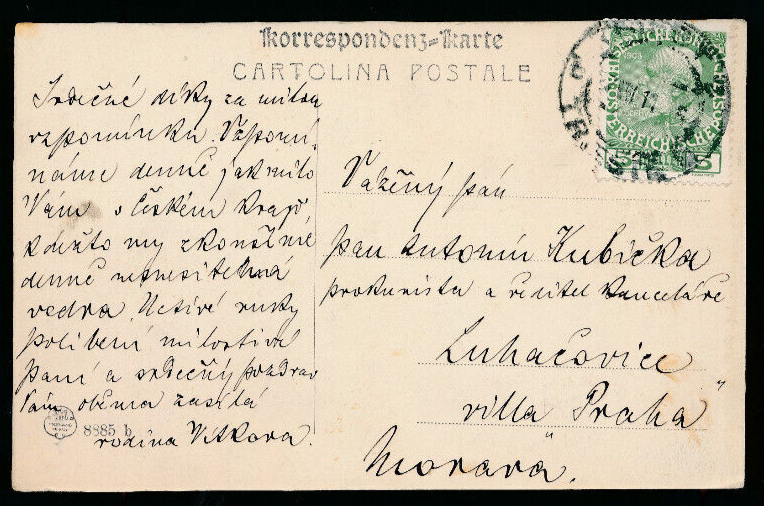 Korrespondenz-Karte
CARTOLINA POSTALE
Srdečné díky za milou
vzpomínku. Vzpomí-
náme denně jak milo
Vám v českém kraji
kdežto my zkoušíme
denně nesnesitelná
vedra. Uctivé ruky
políbení milostivá
paní a srdečný pozdrav
Vám oběma zasílá
rodina Vítkova.
8885 b
Vážený pán
pan Antonín Kubička
prokurista a ředitel kanceláře
Luhačovice
villa "Praha"
Morava.
1908
5